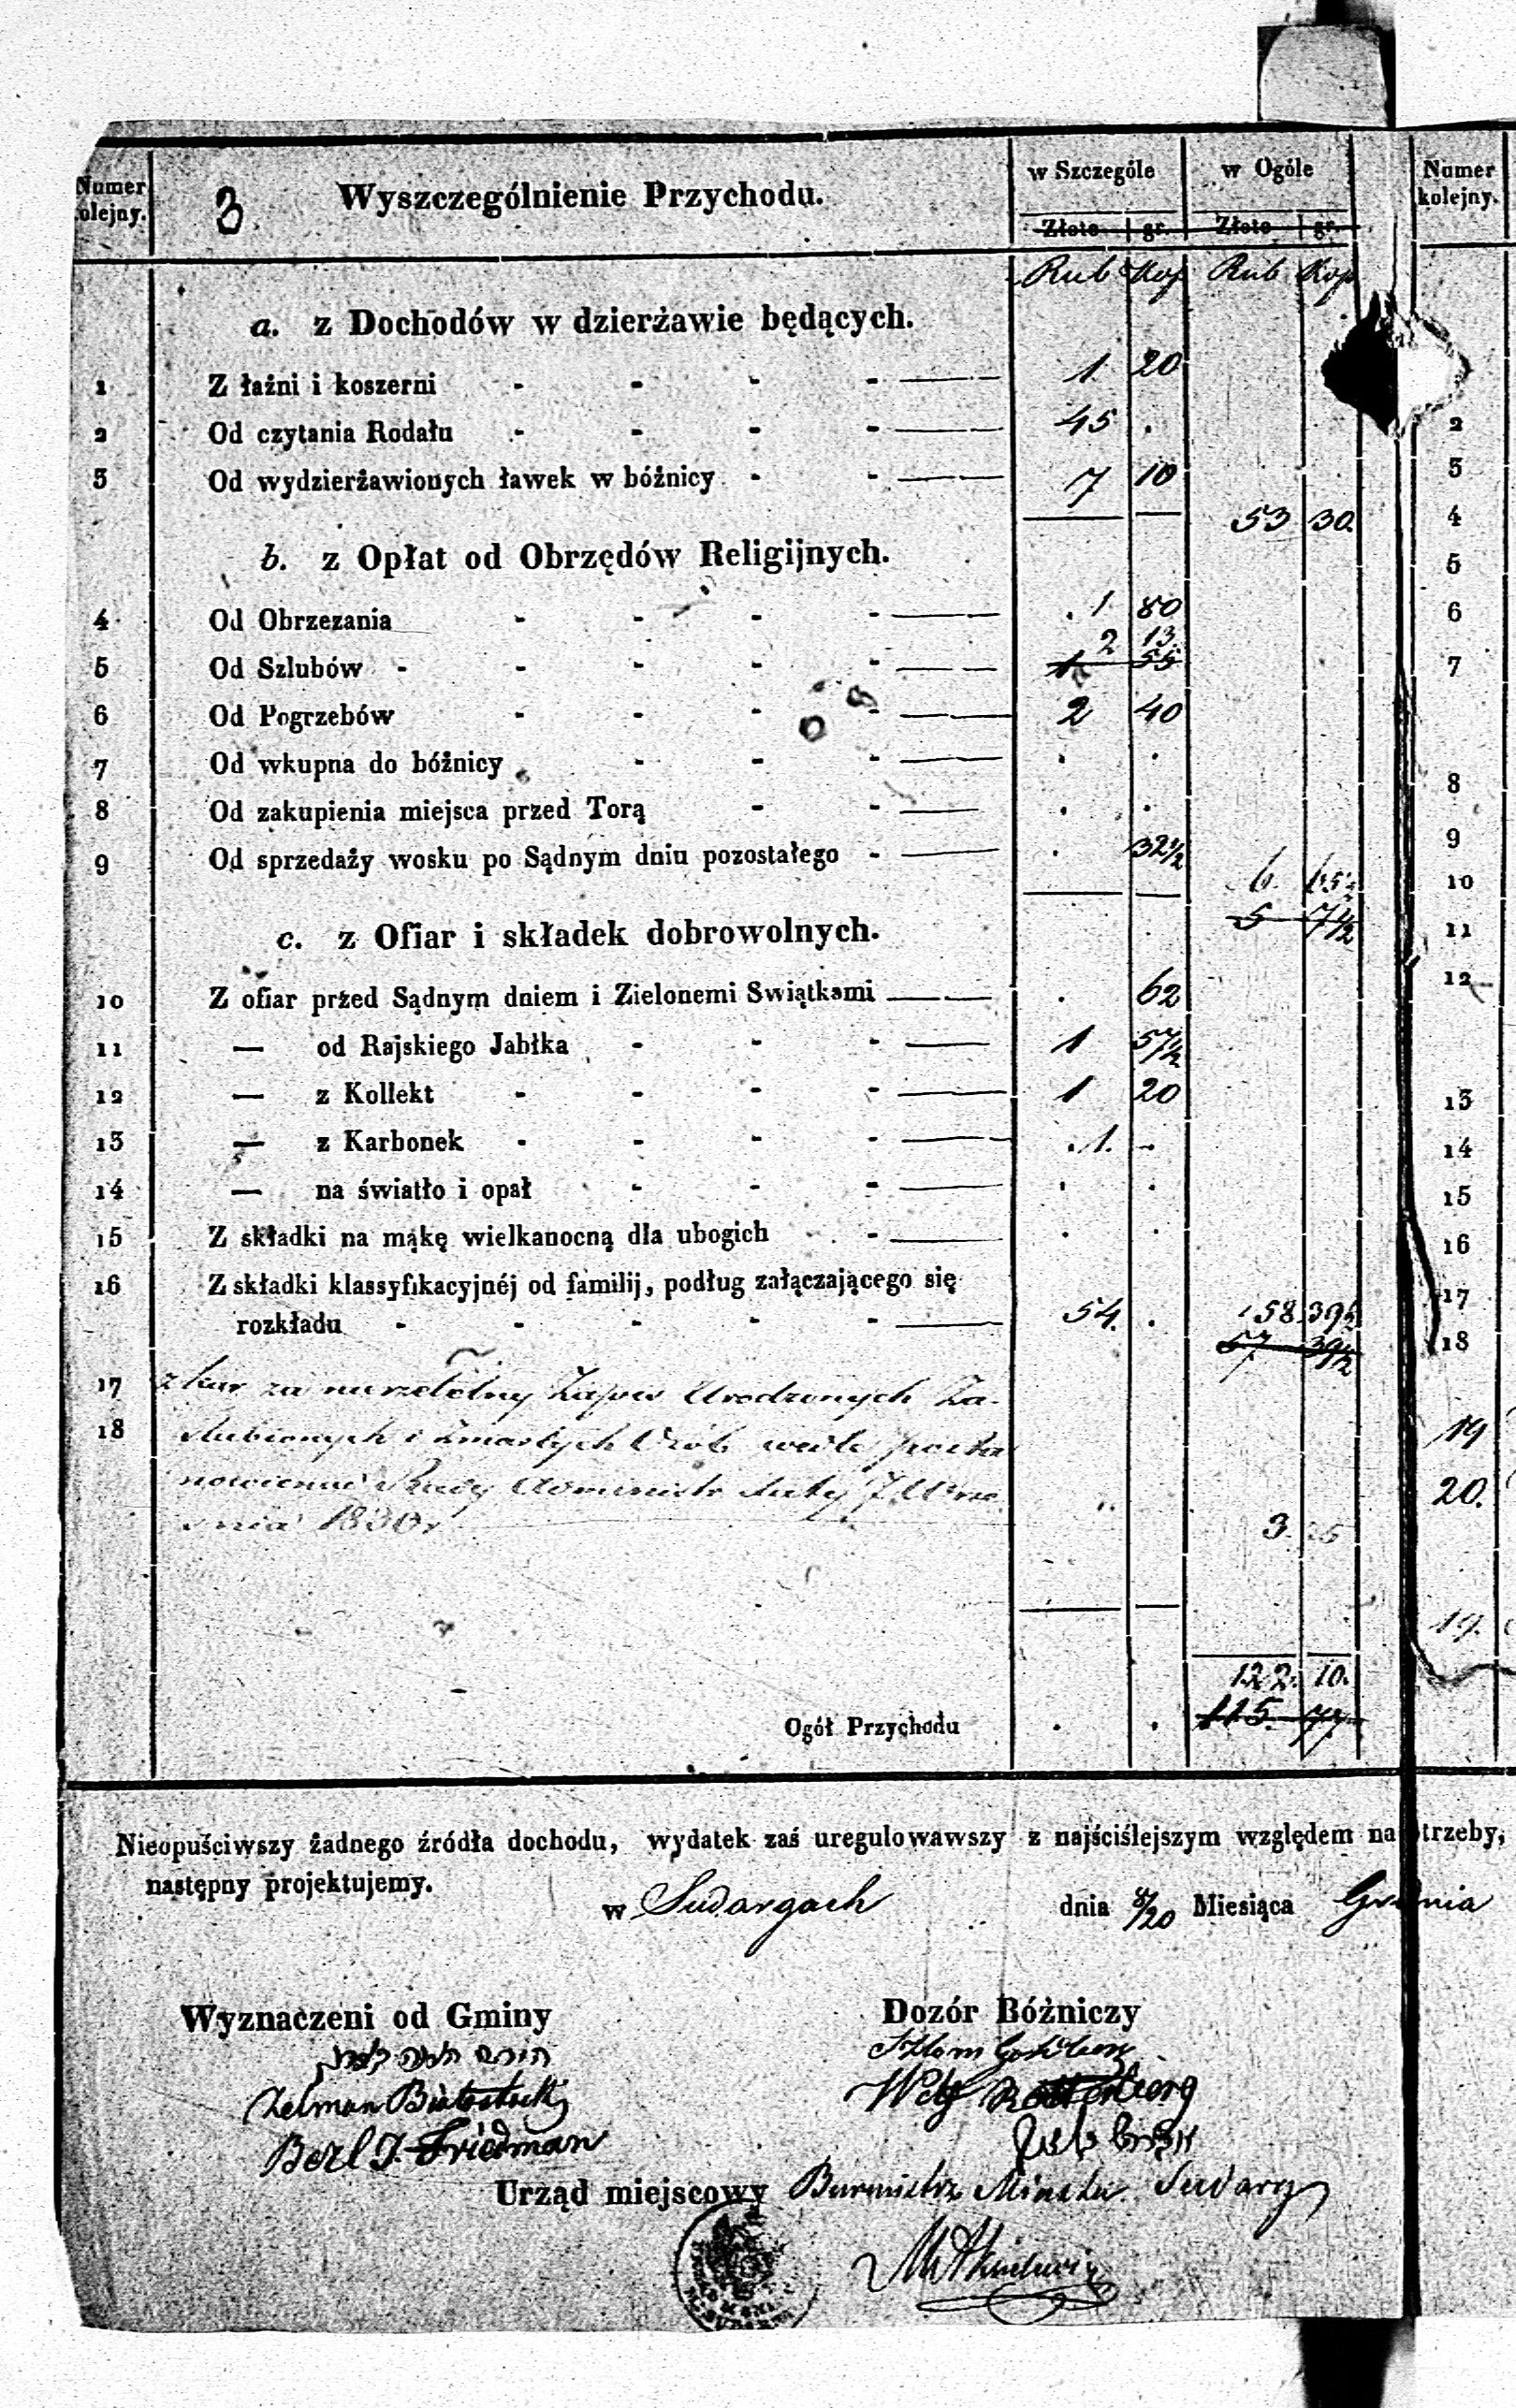 Numer kolejny. 3 Wyszczególnienie Przychodu. w Szczególe w Ogóle Numer kolejny.
Złote gr. Złote gr.
Rub Kop Rub Kop
a. z Dochodów w dzierżawie będących.
1 Z łaźni i koszerni 1. 20
2 Od czytania Rodału 45 . 2
3 Od wydzierżawionych ławek w bóżnicy 7 10 3
53 30. 4
b. z Opłat od Obrzędów Religijnych. 5
4 Od Obrzezania 1 80 6
2 13.
5 Od Szlubów 1 55 7
6 Od Pogrzebów 2 40
7 Od wkupna do bóżnicy . .
8 Od zakupienia miejsca przed Torą . . 8
9 Od sprzedaży wosku po Sądnym dniu pozostałego . 32½ 9
6. 65½ 10
5 7½ 11
c. z Ofiar i składek dobrowolnych.
10 Z ofiar przed Sądnym dniem i Zielonemi Swiątkami . 62 12
11 — od Rajskiego Jabłka 1 57½
12 — z Kollekt 1 20 13
13 — z Karbonek 1. - 14
14 — na światło i opał . . 15
15 Z składki na mąkę wielkanocną dla ubogich . . 16
16 Z składki klassyfikacyjnéj od familij, podług załączającego się 17
rozkładu 54. . 58 39½ 18
57 39½
17 z kar za nierzetelny Zapis Urodzonych Za-
18 slubionych i Zmarłych Osób wedle posta 19
nowienia Rady Administr daty 7 Wrze 20.
snia 1830 r 3. 25
19.
122. 10.
Ogół Przychodu . . 115. 77
Nieopuściwszy żadnego źródła dochodu, wydatek zaś uregulowawszy z najściślejszym względem na trzeby,
następny projektujemy.
w Sudargach dnia 8/20 Miesiąca Grudnia
Wyznaczeni od Gminy Dozór Bóżniczy
Zelman Białostocki
Berl J. Friedman
Urząd miejscowy Burmistrz Miasta Sudarg